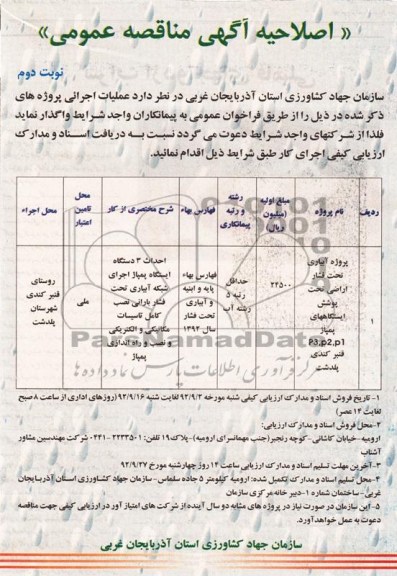 « اصلاحیه آگهی مناقصه عمومی»
نوبت دوم
سازمان جهاد کشاورزی استان آذربایجان غربی در نظر دارد عملیات اجرائی پروژه های
ذکر شده در ذیل را از طریق فراخوان عمومی به پیمانکاران واجد شرایط واگذار نماید
فلذا از شرکتهای واجد شرایط دعوت می گردد نسبت به دریافت اسناد و مدارک
ارزیابی کیفی اجرای کار طبق شرایط ذیل اقدام نمائید.
ردیف
نام پروژه
مبلغ اولیه (میلیون ریال)
رشته و رتبه پیمانکاری
فهارس بهاء
شرح مختصری از کار
محل تامین اعتبار
محل اجراء
۱
پروژه آبیاری
تحت فشار
اراضی تحت
پوشش
ایستگاههای
پمپاژ
P3,p2,p1
قنبر کندی
پلدشت
۲۴۵۰۰
حداقل
رتبه ۵
رشته آب
فهارس بهاء
پایه و ابنیه
و آبیاری
تحت فشار
سال ۱۳۹۲
احداث ۳ دستگاه
ایستگاه پمپاژ اجرای
شبکه آبیاری تحت
فشار بارانی نصب
کامل تاسیسات
مکانیکی و الکتریکی
و نصب و راه اندازی
پمپاژ
ملی
روستای
قنبر کندی
شهرستان
پلدشت
PariNamadData
مرکز فرآوری اطلاعات پارس نماد داده ها
۱-تاریخ فروش اسناد و مدارک ارزیابی کیفی شنبه مورخه ۹۲/۹/۲ لغایت شنبه ۹۲/۹/۱۶ (روزهای اداری از ساعت ۸ صبح
لغایت ۱۴ عصر)
۲-محل فروش اسناد و مدارک ارزیابی:
ارومیه-خیابان کاشانی-کوچه رنجبر(جنب مهمانسرای ارومیه)-پلاک۱۹ تلفن: ۲۲۳۳۵۰۱-۰۴۴۱ شرکت مهندسین مشاور
آشناب
۳-آخرین مهلت تسلیم اسناد و مدارک ارزیابی ساعت ۱۴ روز چهارشنبه مورخ ۹۲/۹/۲۷
۴-محل تسلیم اسناد و مدارک تکمیل شده: ارومیه کیلومتر ۵ جاده سلماس- سازمان جهاد کشاورزی استان آذربایجان
غربی- ساختمان شماره ۱-دبیر خانه مرکزی سازمان
۵-این سازمان در صورت نیاز در پروژه های مشابه دو سال آینده از شرکت های امتیاز آور در ارزیابی کیفی جهت مناقصه
دعوت به عمل خواهد آورد.
سازمان جهاد کشاورزی استان آذربایجان غربی